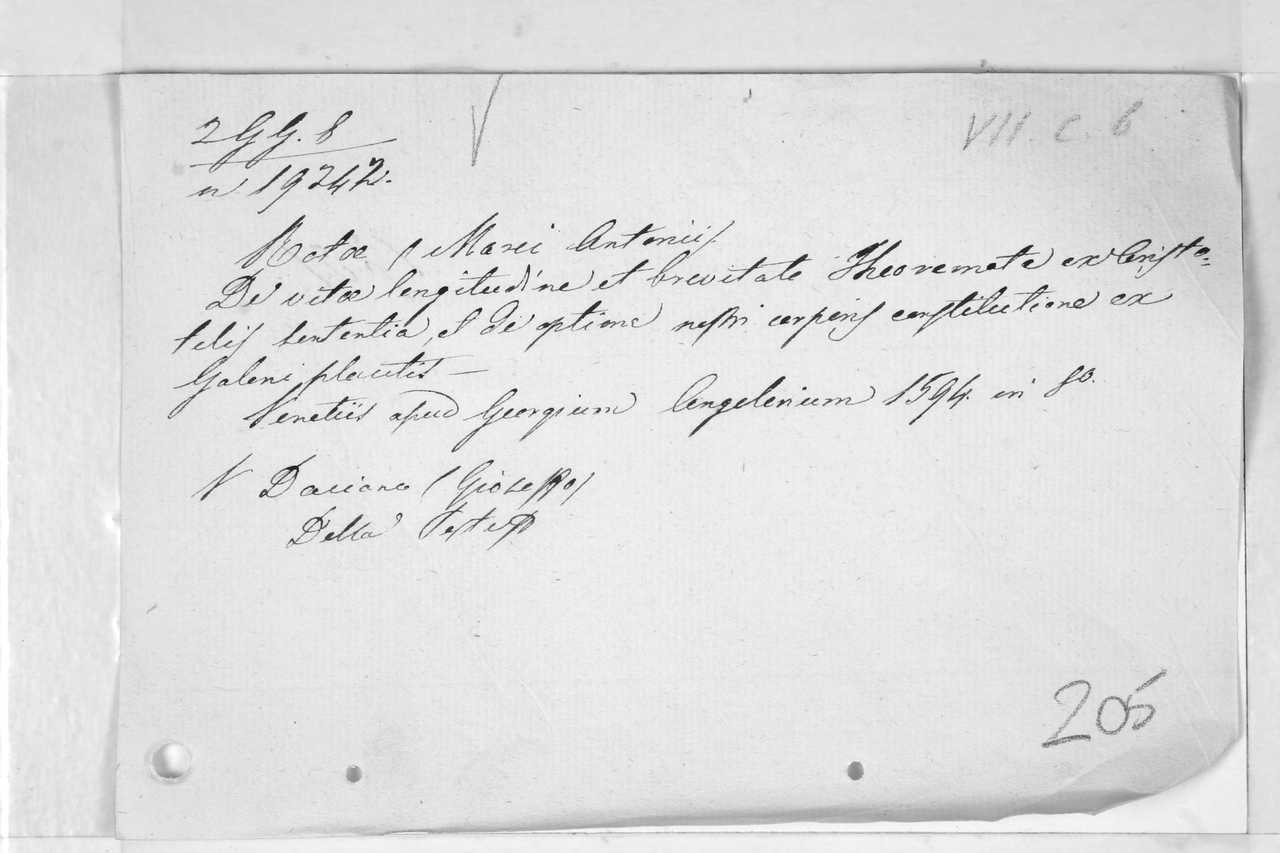 2 GG. 8
n 19242.
VII. C. 6
Rotæ (Marci Antonii)
De vitæ longitudine et brevitate Theoremata ex Aristo-
telis sententia, et de optima nostri corporis constitutione ex
Galeni placitis —
Venetiis apud Georgium Angelerium 1594. in 8o.
V Daciano (Gioseppo)
Della Peste
205